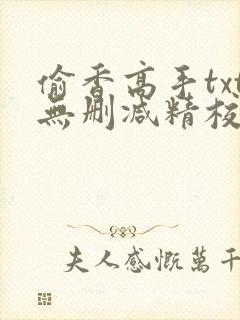 偷香高手txt
無删减精校
夫人感慨萬千